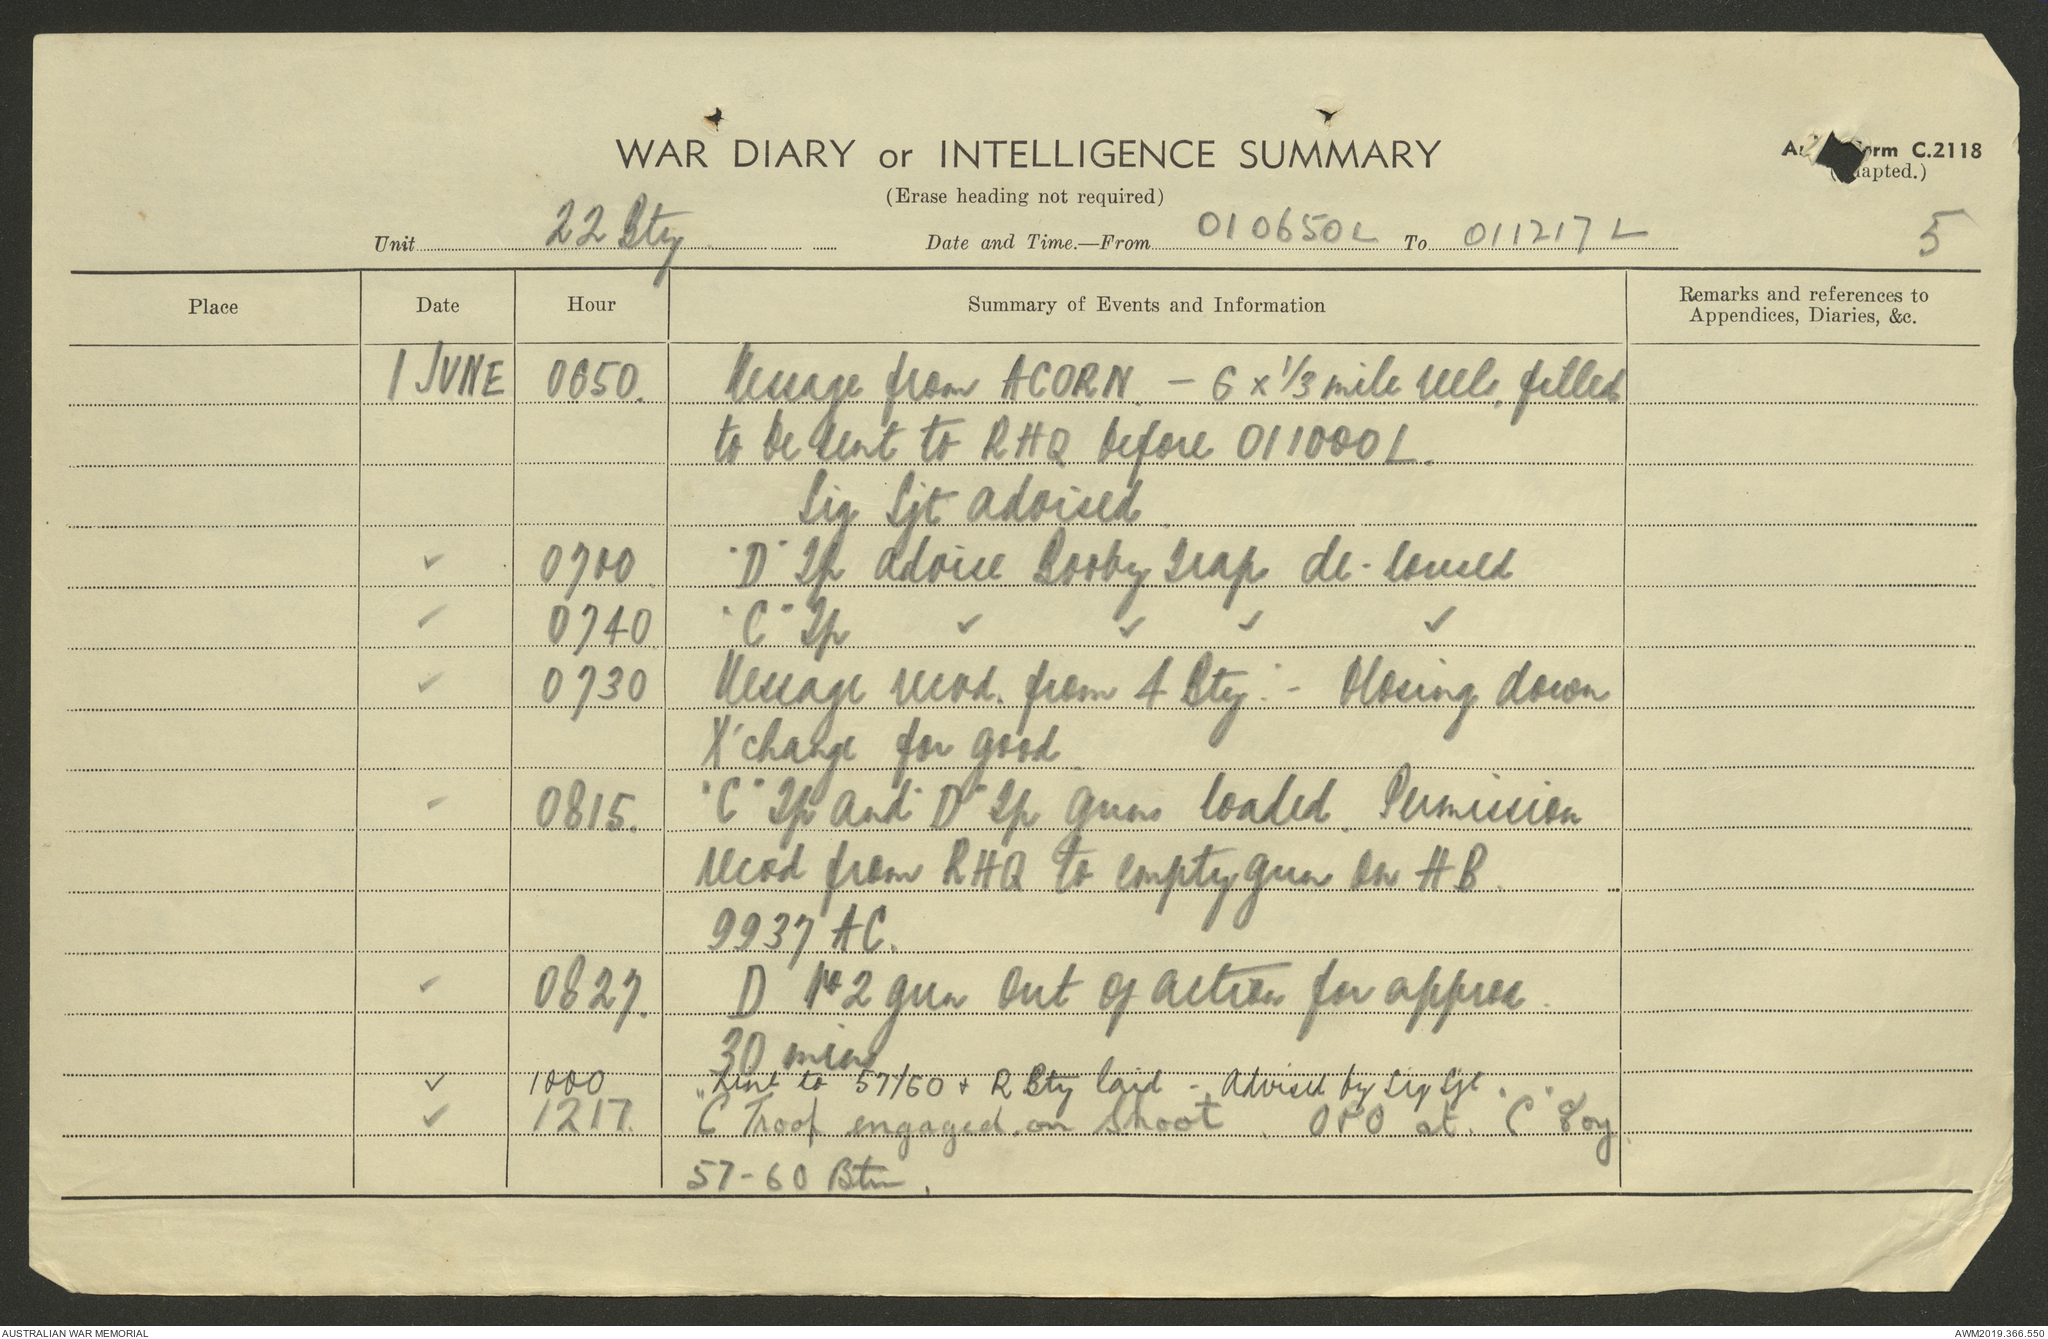 WAR DIARY or INTELLIGENCE SUMMARY
(Erase heading not required)
Form C.2118
Unit 22 Bty Date and Time.—From 010650L To 011217L 5
Place Date Hour Summary of Events and Information Remarks and references to Appendices, Diaries, &c.
1 JUNE 0650. Message from ACORN. - 6 x 1/3 mile reels, filled
to be sent to RHQ before 011000L.
Sig Sjt advised
✓ 0700. "D" Tp advise Booby Trap de-loused
✓ 0740 "C" Tp ✓ ✓ ✓ ✓
✓ 0730 Message recvd. from A Bty :- Closing down
X'change for good
✓ 0815. "C" Tp and "D" Tp guns loaded. Permission
recvd from RHQ to empty gun on HB.
9937 AC.
✓ 0827. D No 2 gun out of action for approx.
30 mins
✓ 1000 Line to 57/60 + R Bty laid - advised by Sig Sjt.
✓ 1217. "C Troop engaged on shoot. OPO at "C" Coy
57-60 Btn.
AUSTRALIAN WAR MEMORIAL
AWM2019.366.550